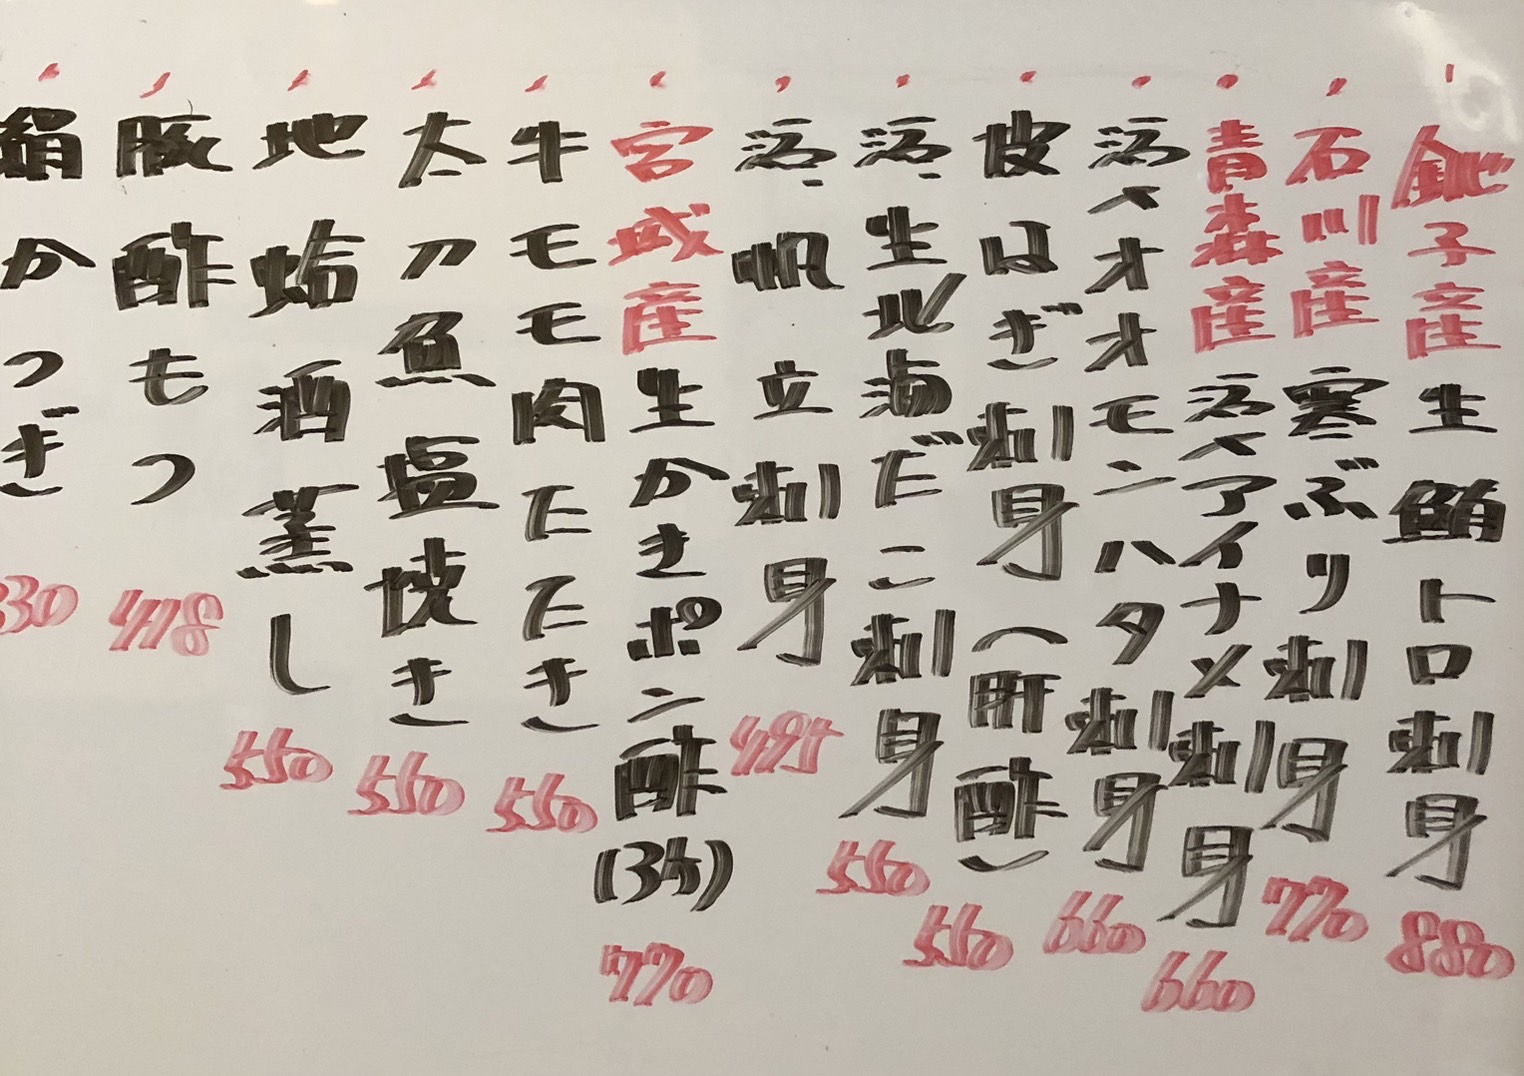 銚子産生鮪トロ刺身 880
石川産寒ぶり刺身 770
青森産活〆アイナメ刺身 660
活〆オオモンハタ刺身 660
皮はぎ刺身(肝酢) 550
活生北海だこ刺身 550
活帆立刺身 495
宮城産生かきポン酢(3ケ) 770
牛モモ肉たたき 550
太刀魚塩焼き 550
地蛤酒蒸し 550
豚酢もつ 418
絹かつぎ 330